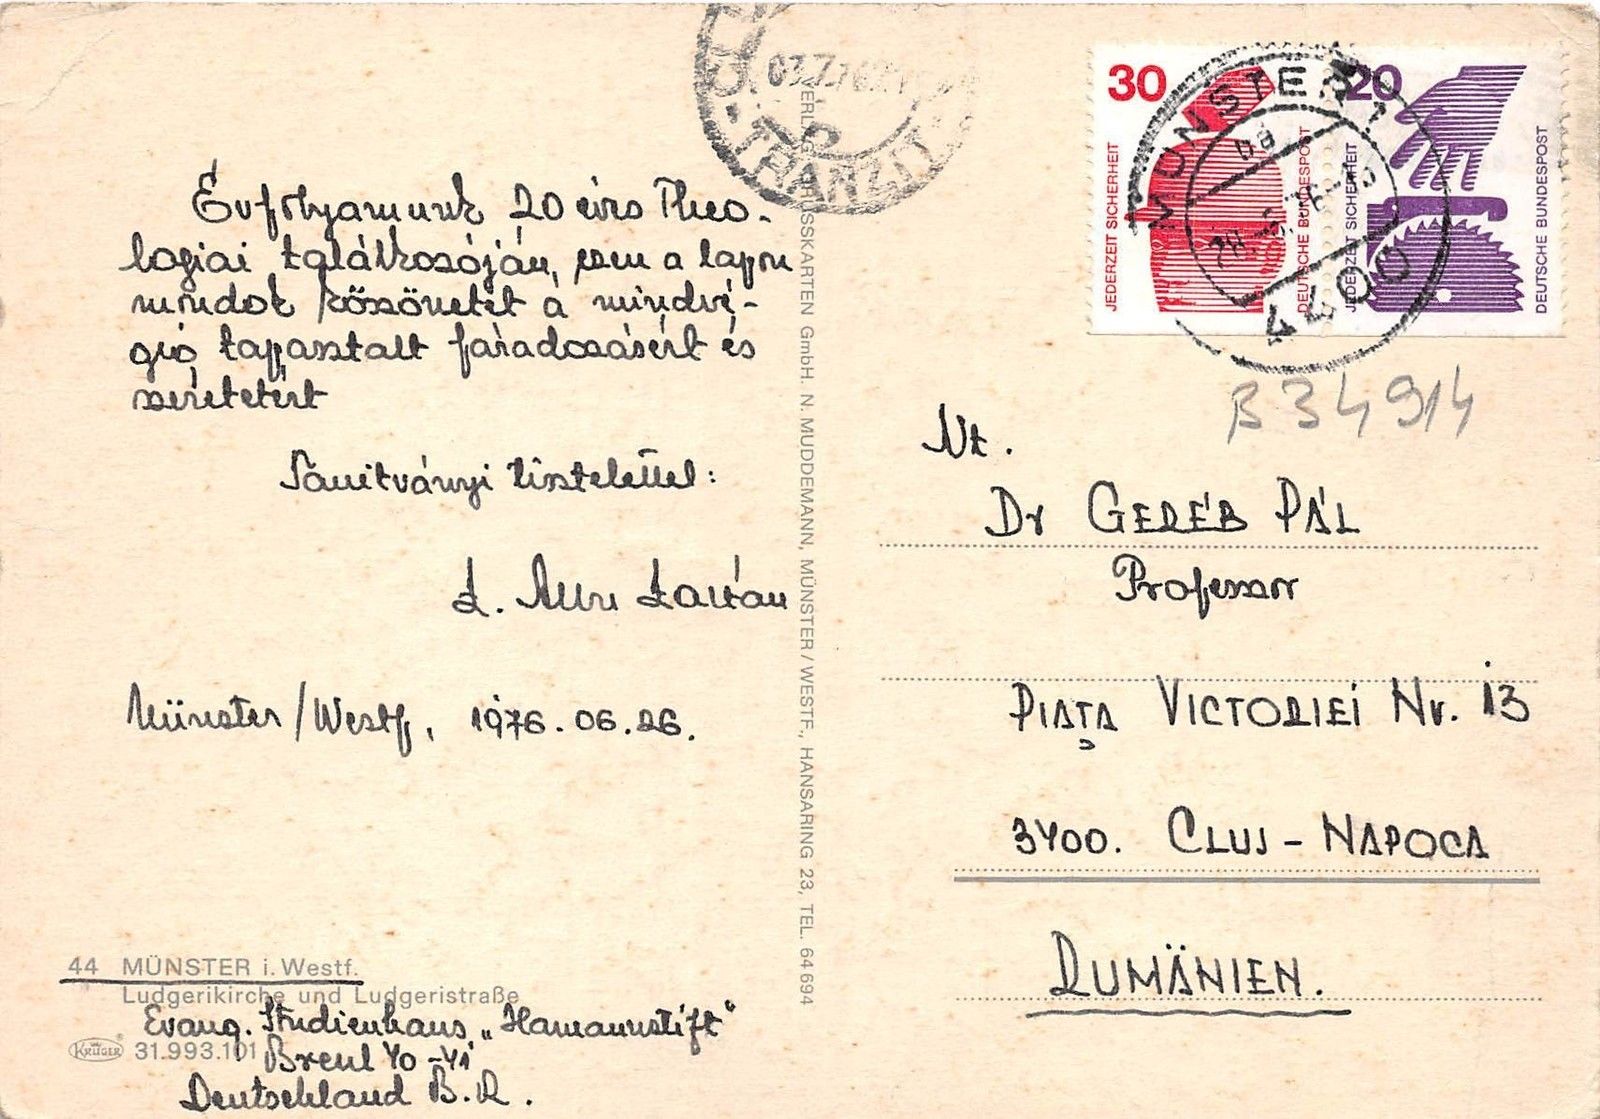 Évfolyamunk 20 éves Theo-
logiai találkozóján, ezen a lapon
mondok köszönetet a mindvé-
gig tapasztalt fáradozásért és
szeretetért
Tanítványi tisztelettel:
Zoltán
Münster/Westf, 1976.06.26.
44 MÜNSTER i. Westf.
Ludgerikirche und Ludgeristraße
Evang. Studienhaus „Hamannstift"
KRÜGER 31.993.101
Breul 40-41
Deutschland B.R.
VERLAG GRUSSKARTEN GmbH. N. MUDDEMANN, MÜNSTER/WESTF., HANSARING 23, TEL. 64694
TRANZIT
30
JEDERZEIT SICHERHEIT
DEUTSCHE BUNDESPOST
20
JEDERZEIT SICHERHEIT
DEUTSCHE BUNDESPOST
MÜNSTER 1
4400
B 34914
Nt.
Dr GERÉB PÁL
Professor
PIAȚA VICTORIEI Nr. 13
3400. CLUJ-NAPOCA
RUMÄNIEN.